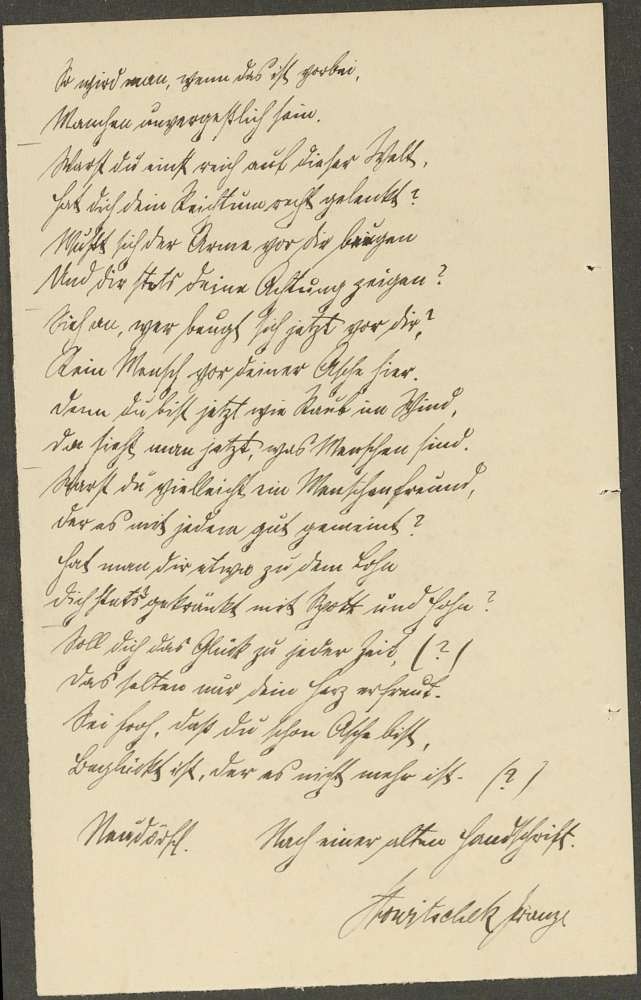 So wird man, wenn das ist vorbei,
Manchen unvergeßlich sein.
Warst du einst reich auf dieser Welt,
hat dich dein Reichtum recht gelenkt?
Mußt sich der Arme vor dir beugen
Und dir stets seine Achtung zeigen?
Sieh an, wer beugt sich jetzt vor dir?
Kein Mensch vor deiner Asche hier.
Denn du bist jetzt wie Staub im Wind,
da sieht man jetzt, was Menschen sind.
Warst du vielleicht ein Menschenfreund,
der es mit jedem gut gemeint?
hat man dir etwa zu dem Lohn
dich stets gekränkt mit Spott und Hohn?
Soll dich das Glück zu jeder Zeit, (?)
das selten nur dein Herz erfreut.
Sei froh, daß du schon Asche bist,
Beglückt ist, der es nicht mehr ist. (?)
Neudörfl. Nach einer alten Handschrift.
Franz